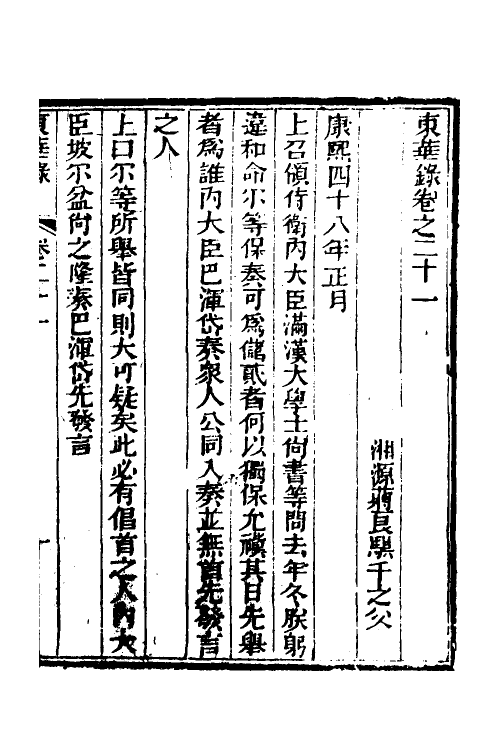 東華錄卷之二十一
湘源蔣良騏千之父
康熙四十八年正月
上召領侍衛內大臣滿漢大學士尙書等問去年冬朕躬
違和命尔等保奏可爲儲貳者何以獨保允禩其日先舉
者爲誰內大臣巴渾岱奏眾人公同入奏並無首先發言
之人
上曰尔等所舉皆同則大可疑矣此必有倡首之人內大
臣坡尔盆尙之隆奏巴渾岱先發言
東華錄 卷二十一 一